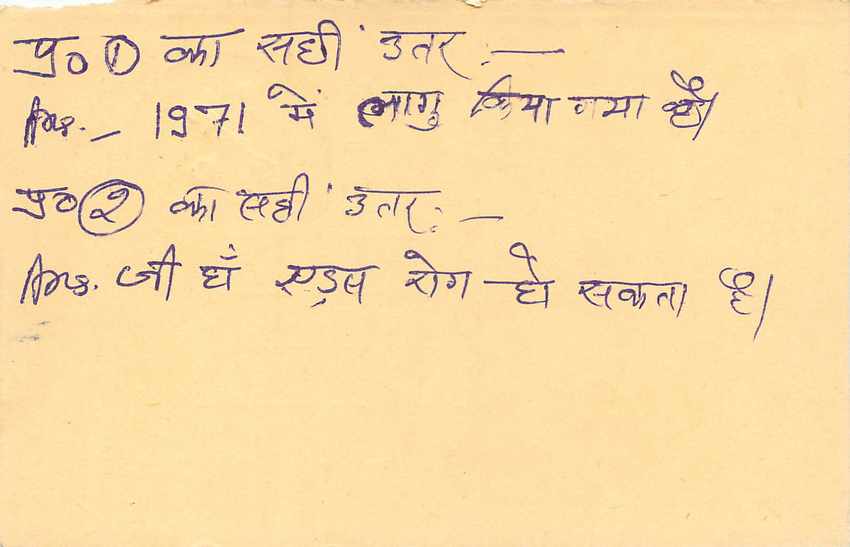 प्र० ① का सही उतर :—
Ans. – 1971 में लागु किया गया है।
प्र० ② का सही उतर :—
Ans. जी हाँ एड्स रोग हो सकता है।